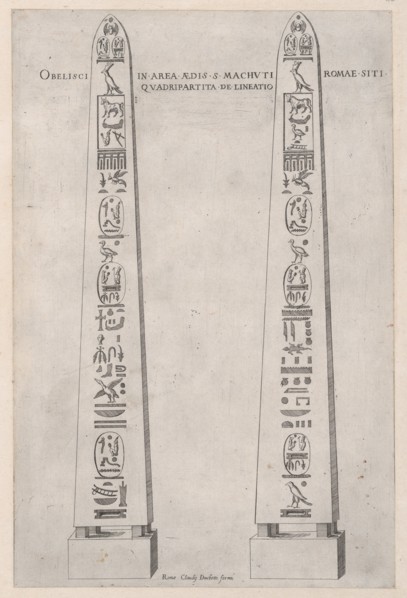 OBELISCI IN·AREA·ÆDIS·S·MACHVTI ROMAE·SITI·
QVADRIPARTITA·DE·LINEATIO
Romæ Claudij Duchetti formis